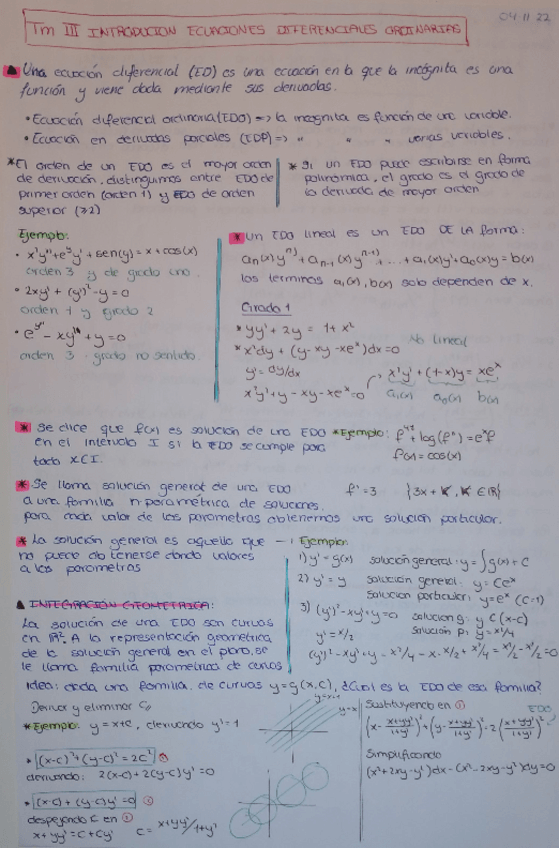 04 11 22
Tm III INTRODUCION ECUACIONES DIFERENCIALES ORDINARIAS
Una ecuación diferencial (ED) es una ecuación en la que la incógnita es una
función y viene dada mediante sus derivadas.
• Ecuación diferencial ordinaria (EDO) => la magnita es función de una variable.
• Ecuación en derivadas parciales (EDP) => " " " varias variables.
* El orden de un EDO es el mayor orden
de derivación, distinguimos entre EDO de
primer orden (orden 1) y EDO de orden
superior (≥2)
* Si un EDO puede escribirse en forma
polinómica, el grado es el grado de
la derivada de mayor orden
Ejemplo:
• x³y'''+e^x y'+sen(y)=x+cos(x)
orden 3 y de grado uno
• 2xy' + (y')²-y=0
orden 1 y grado 2
• e^y''' - xy'' + y = 0
orden 3 - grado no sentido.
* Un EDO lineal es un EDO DE LA forma:
aₙ(x)yⁿ⁾ + aₙ₋₁(x)yⁿ⁻¹⁾ + ... + a₁(x)y' + a₀(x)y = b(x)
los terminos aᵢ(x), b(x) solo dependen de x.
Grado 1
* yy' + 2y = 1+x² No lineal
* x²dy + (y-xy-xe^x)dx=0
y'=dy/dx
x²y'+y-xy-xe^x=0
x²y' + (1-x)y = xe^x
a₁(x) a₀(x) b(x)
* Se dice que f(x) es solución de una EDO
en el intervalo I si la EDO se cumple para
todo x∈I.
* Ejemplo:
f(x)=cos(x)
* Se llama solución general de una EDO
a una familia n-paramétrica de soluciones.
para cada valor de los parametros obtenemos una solución particular.
f'=3 {3x + K, K ∈ ℝ}
* La solución general es aquella que
no puede obtenerse dando valores
a los parametros
Ejemplo:
1) y'=g(x) solución general: y=∫g(x)+C
2) y'=y solución general: y=Ce^x
solución particular: y=e^x (C=1)
3) (y')²-xy'+y=0 solución g: y C(x-c)
y'=x/2 solución p: y=x²/4
(y')²-xy'+y = x²/4 - x·x/2 + x²/4 = x²/2-x²/2=0
INTEGRACIÓN GEOMETRICA:
La solución de una EDO son curvas
en ℝ². A la representación geométrica
de la solución general en el plano, se
le llama familia parametrica de curvas
Idea: dada una familia de curvas y=g(x,C), ¿Cual es la EDO de esa familia?
Derivar y eliminar C
* Ejemplo: y=x+c, derivando y'=1
y=x+c
y=x
• (x-c)²+(y-c)²=2C² ①
derivando: 2(x-c)+2(y-c)y'=0
• (x-c)+(y-c)y'=0 ②
despejando c en ②
x+yy'=C+Cy' C= x+yy'/1+y'
Sustituyendo en ①
EDO
(x - x+yy'/1+y')² + (y - x+yy'/1+y')² = 2(x+yy'/1+y')²
Simplificando
(x²+2xy-y²)dx-(x²-2xy-y²)dy=0